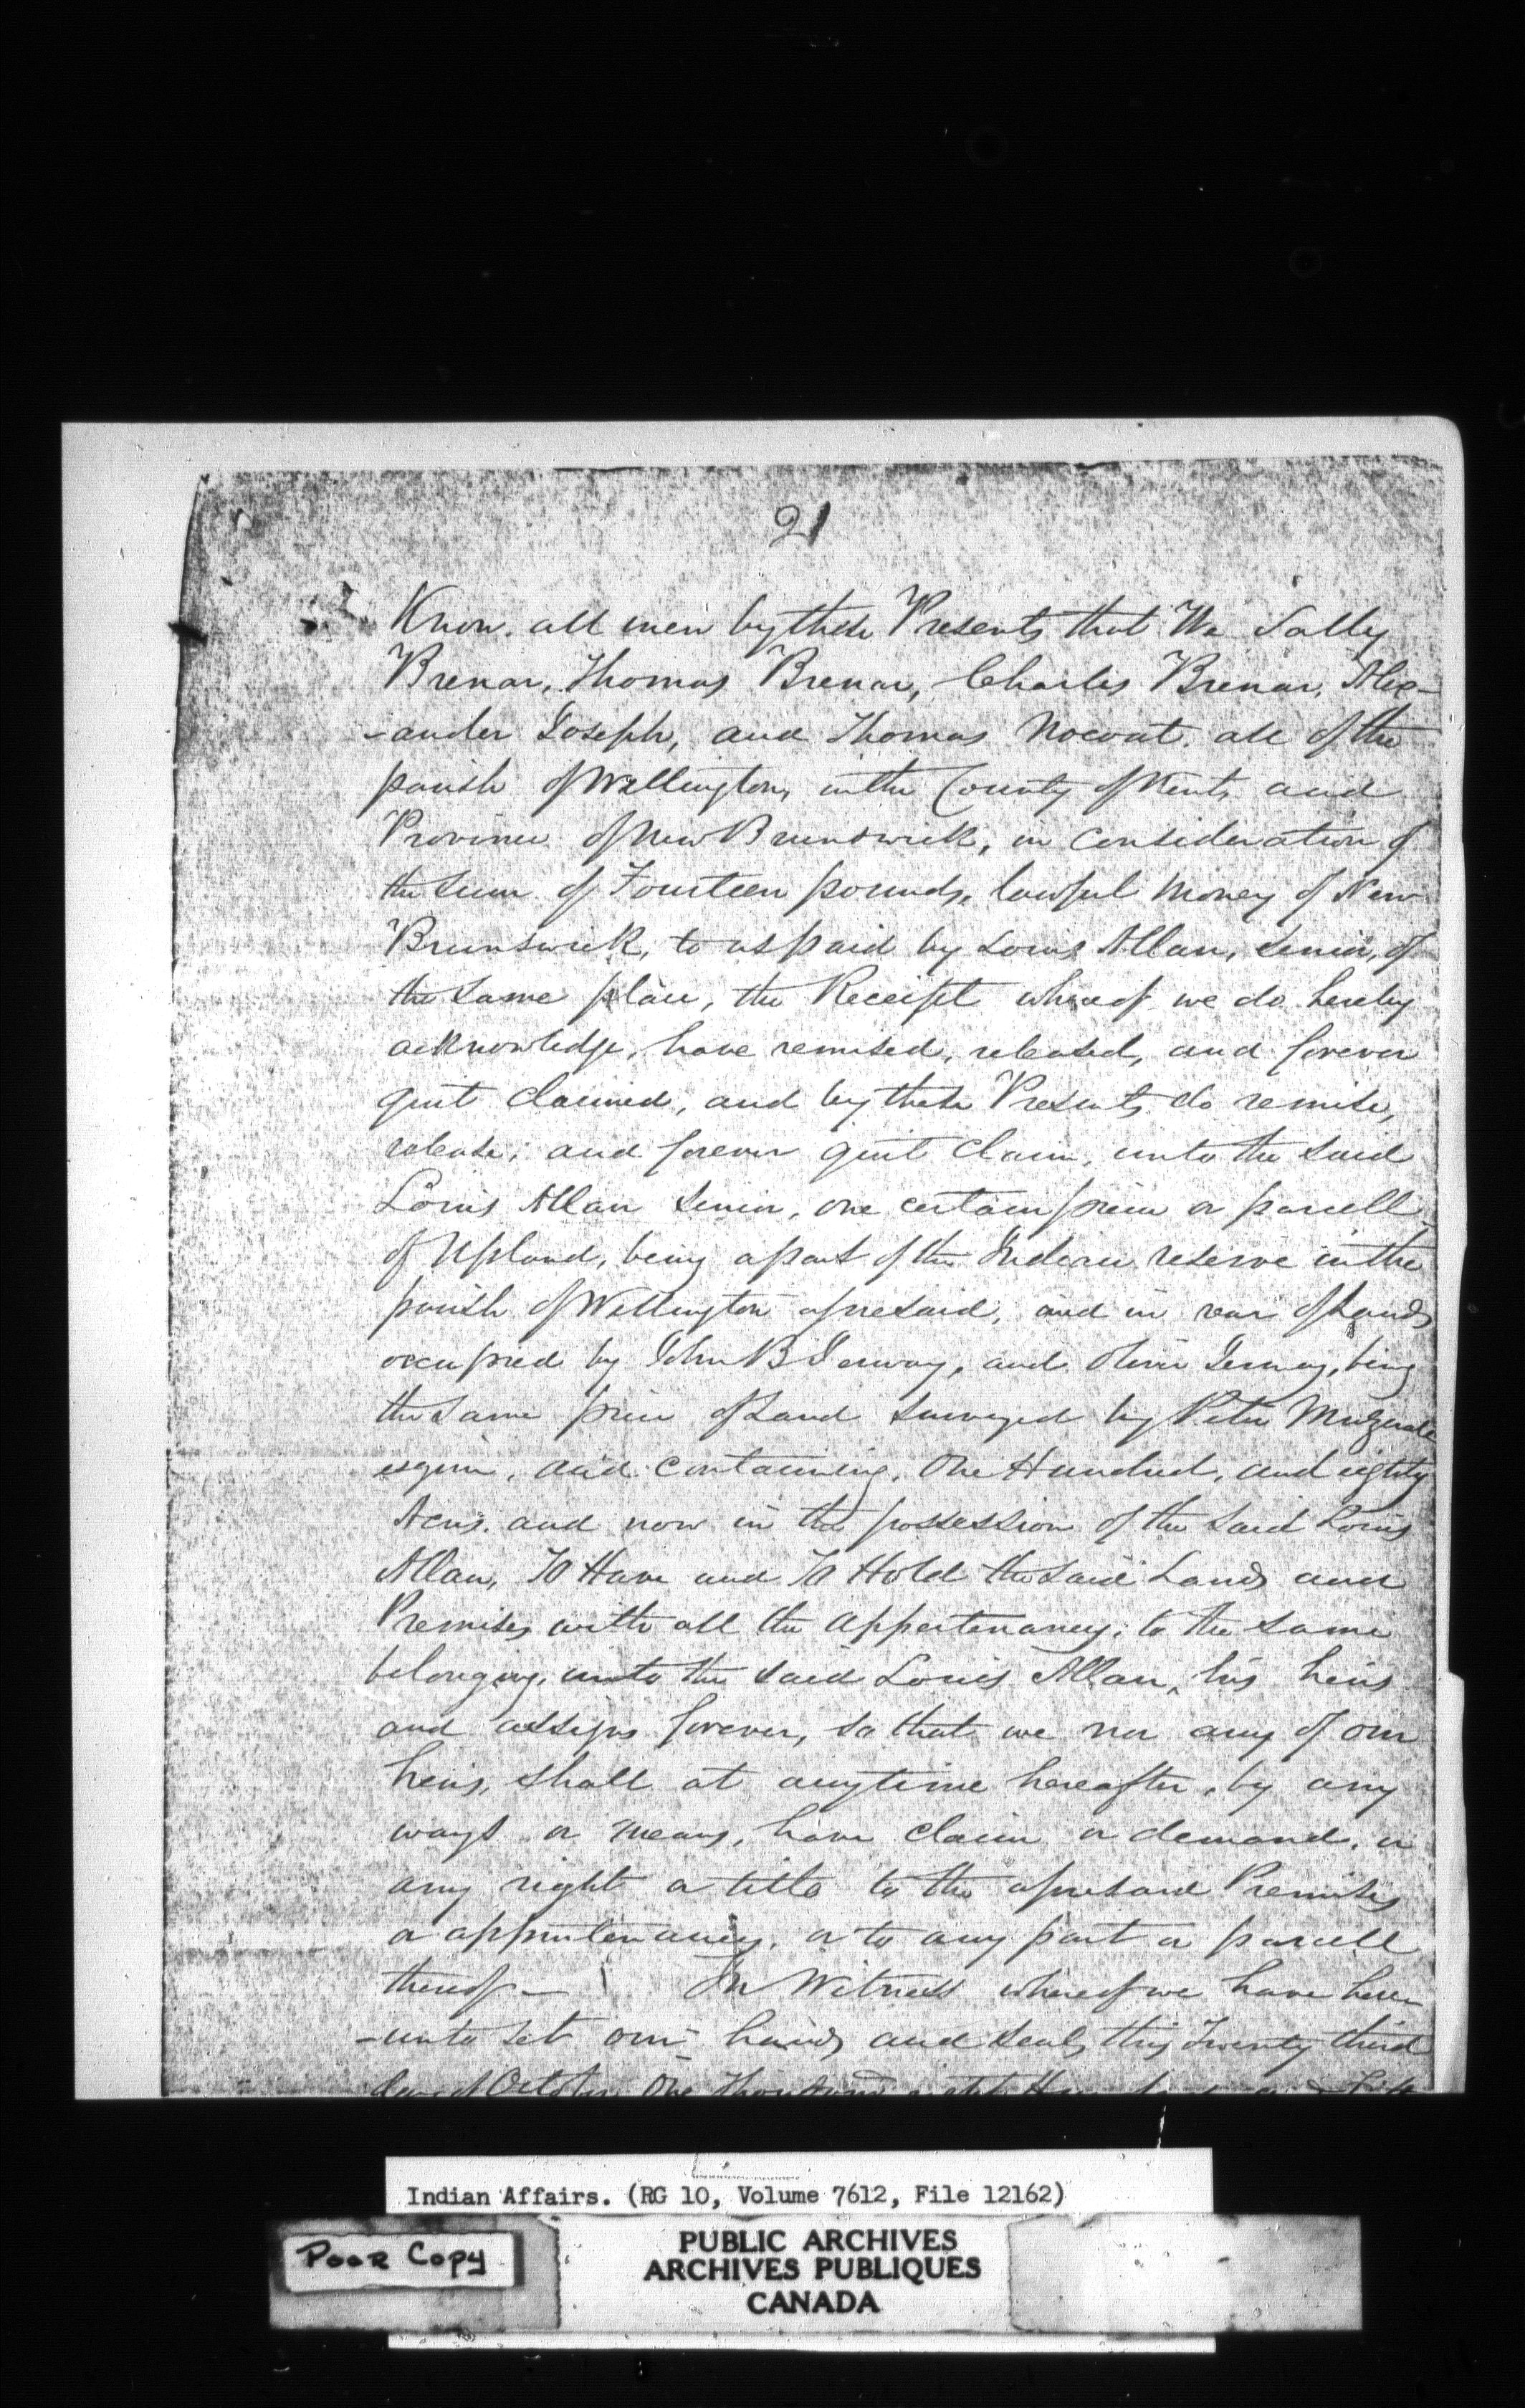 21
Know all men by these Presents that We Sally
Brenar, Thomas Brenar, Charles Brenar, Alex-
-ander Joseph, and Thomas Nocoat. all of the
parish of Wellington, in the County of Kent, and
Province of New Brunswick, in consideration of
the sum of Fourteen pounds, lawful money of New
Brunswick, to us paid by Louis Allan, Senior, of
the same place, the Receipt whereof we do hereby
acknowledge, have remised, released, and forever
quit claimed, and by these Presents do remise,
release, and forever quit claim, unto the said
Louis Allan Senior, one certain piece or parcell
of Upland, being a part of the Indian reserve in the
parish of Wellington aforesaid, and in rear of Lands
occupied by John B and Oliver being
the same piece of Land Surveyed by Peter
esquire, and containing, One Hundred, and eighty
Acres. and now in the possession of the said Louis
Allan, To Have and To Hold the said Lands and
Premises with all the appertenancy, to the same
belonging, unto the said Louis Allan, his heirs
and assigns forever, so that we nor any of our
heirs, shall at anytime hereafter, by any
ways or means, have claim or demand, or
any right or title to the aforesaid Premises
or appurtenancy, or to any part or parcell
thereof— In Witness whereof we have here-
-unto set our hands and seals this Twenty third
day of October One Thousand eight Hundred and
Indian Affairs. (RG 10, Volume 7612, File 12162)
Poor Copy
PUBLIC ARCHIVES
ARCHIVES PUBLIQUES
CANADA